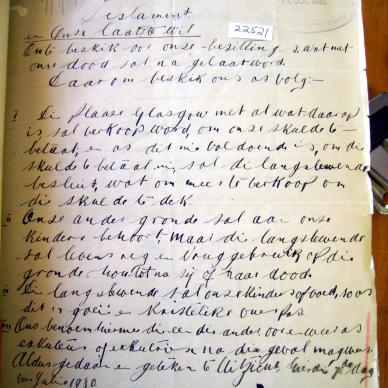 Testament
en Onse laatste wil
22521
Om te beskik oor onse besittings, wat met
onse dood sal na gelaat word.
Daarom beskik ons as volg:—
I Die Plaase Glasgow met al wat daar op
is sal verkoop word, om onse skulde te
betaal, en as dit nie voldoende is, om die
skulde te betaal nie, sal die langslewende
besluit, wat om meer te verkoop om
die skulde te dek.
II Onse ander gronde sal aan onse
kinders behoort, maar die langslewende
sal lewensreg en vruggebruik op die
gronde hou tot na sy of haar dood.
III Die langslewende sal onse kinders opvoed, soos
dit 'n goeie en Kristelike ouer pas
Ons benoem hiermee die een die ander oor weer as
eksekuteur of eksekutrise na die geval mag wees.
Aldus gedaan en geteken te hierdie 7de dag
van Junie 1930